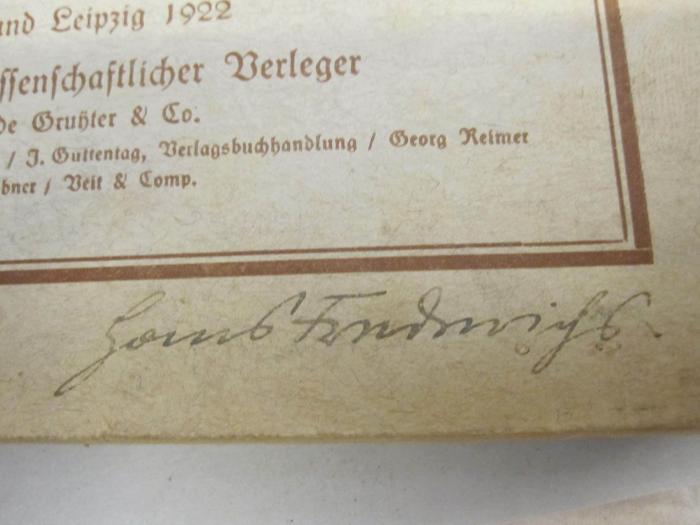 und Leipzig 1922
ssenschaftlicher Verleger
de Gruyter & Co.
/ J. Guttentag, Verlagsbuchhandlung / Georg Reimer
bner / Veit & Comp.
Hans Frederichs.